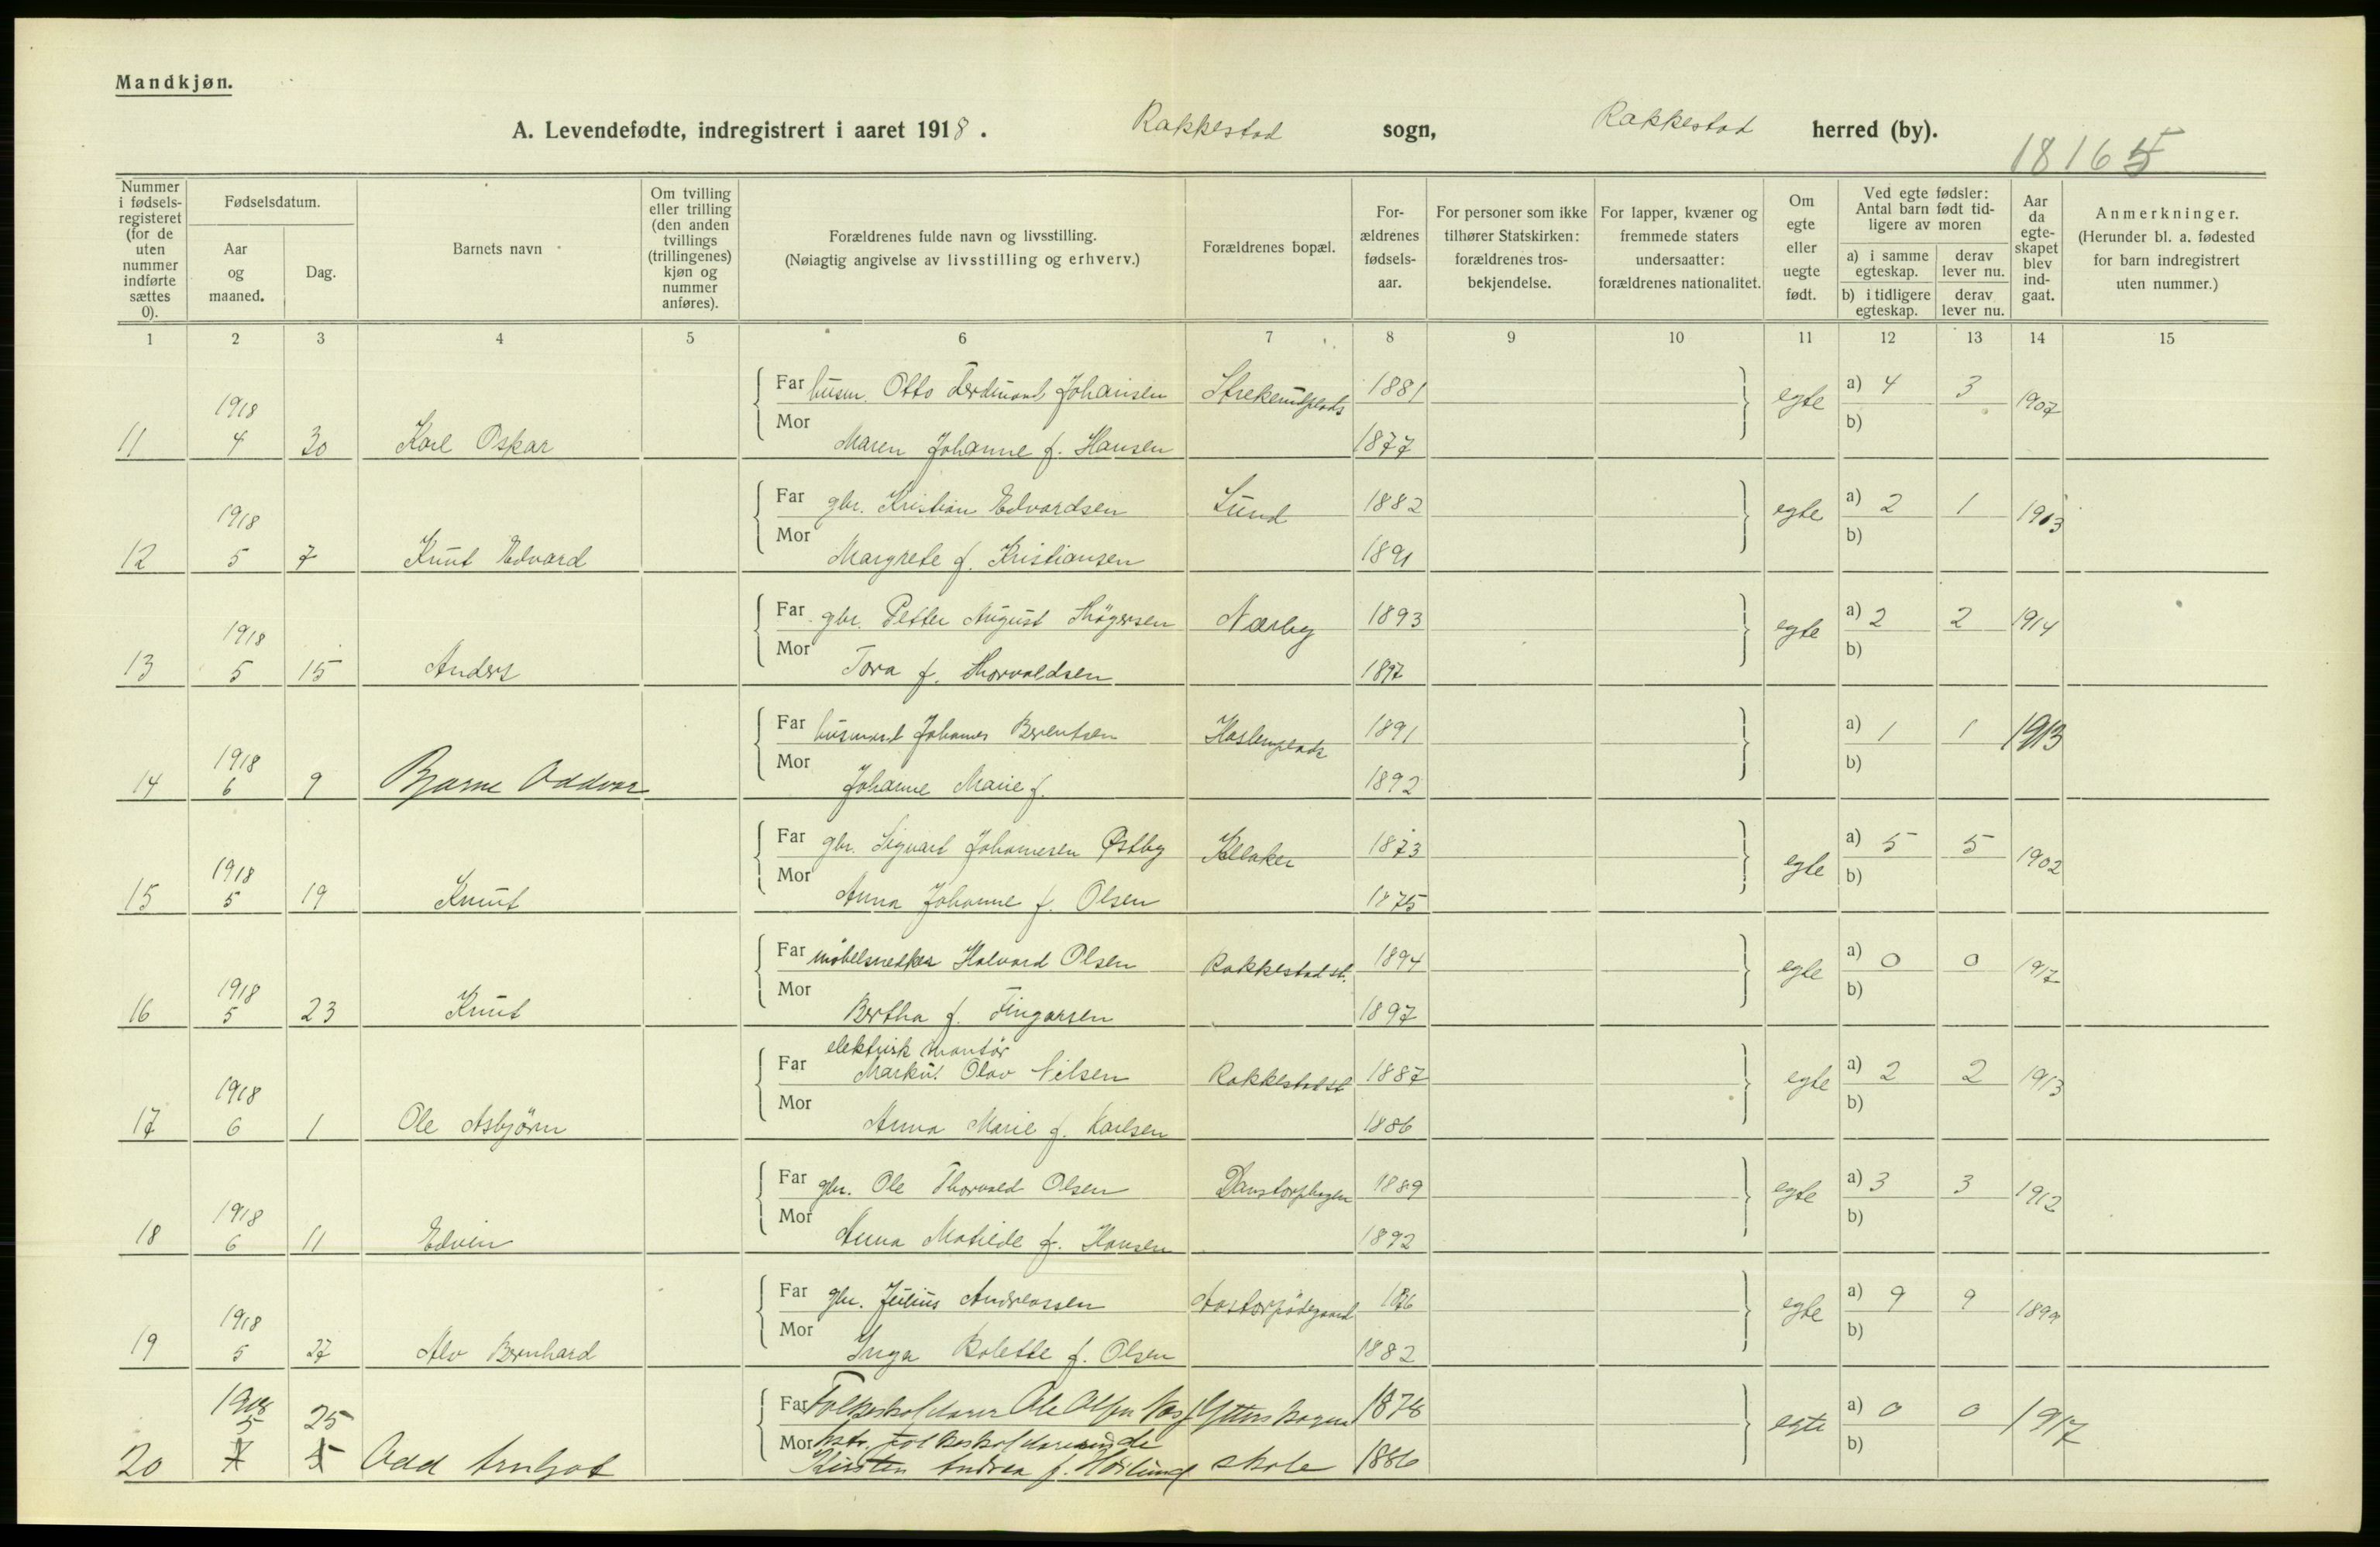 Mandkjøn.
A. Levendefødte, indregistrert i aaret 1918. Rakkestad sogn, Rakkestad herred (by).
18165
Nummer i fødselsregisteret (for de uten nummer indførte sættes 0).
Fødselsdatum.
Aar og maaned.
Dag.
Barnets navn
Om tvilling eller trilling (den anden tvillings (trillingenes) kjøn og nummer anføres).
Forældrenes fulde navn og livsstilling.
(Nøiagtig angivelse av livsstilling og erhverv.)
Forældrenes bopæl.
Forældrenes fødselsaar.
For personer som ikke tilhører Statskirken: forældrenes trosbekjendelse.
For lapper, kvæner og fremmede staters undersaatter: forældrenes nationalitet.
Om egte eller uegte født.
Ved egte fødsler: Antal barn født tidligere av moren
a) i samme egteskap.
derav lever nu.
b) i tidligere egteskap.
derav lever nu.
Aar da egteskapet blev indgaat.
Anmerkninger.
(Herunder bl. a. fødested for barn indregistrert uten nummer.)
1 2 3 4 5 6 7 8 9 10 11 12 13 14 15
Far husm. Otto Ferdinand Johansen 1881 egte a) 4 3 1907
11 1918 4 30 Karl Oskar Mor Maren Johanne f. Hansen 1877 b)
Far gbr. Kristian Edvardsen Lund 1882 egte a) 2 1 1913
12 1918 5 7 Knut Edvard Mor Margrete f. Kristiansen 1891 b)
Far gbr. Petter August Thøgersen Nærby 1893 egte a) 2 2 1914
13 1918 5 15 Anders Mor Tora f. Thorvaldsen 1897 b)
Far husmand Johannes Berentsen 1891 a) 1 1 1913
14 1918 6 9 Bjarne Oddvar Mor Johanne Marie f. 1892 b)
Far gbr. Sigvart Johannesen Østby 1873 egte a) 5 5 1902
15 1918 5 19 Knut Mor Anna Johanne f. Olsen 1875 b)
Far møbelsnedker Halvard Olsen Rakkestad st. 1894 egte a) 0 0 1917
16 1918 5 23 Knut Mor Bertha f. Fingarsen 1897 b)
elektrisk montør
Far Markus Olav Nilsen Rakkestad st 1887 egte a) 2 2 1913
17 1918 6 1 Ole Asbjørn Mor Anna Marie f. Karlsen 1886 b)
Far gbr. Ole Thorvald Olsen 1889 egte a) 3 3 1912
18 1918 6 11 Edvin Mor Anna Matilde f. Hansen 1892 b)
Far gbr. Julius Andreassen 1876 egte a) 9 9 1899
19 1918 5 27 Alv Bernhard Mor Inga Bolette f. Olsen 1882 b)
Far Ole 1878 egte a) 0 0 1917
20 1918 5 25 7 5 Odd Mor Kirsten Andrea f. skole 1886 b)